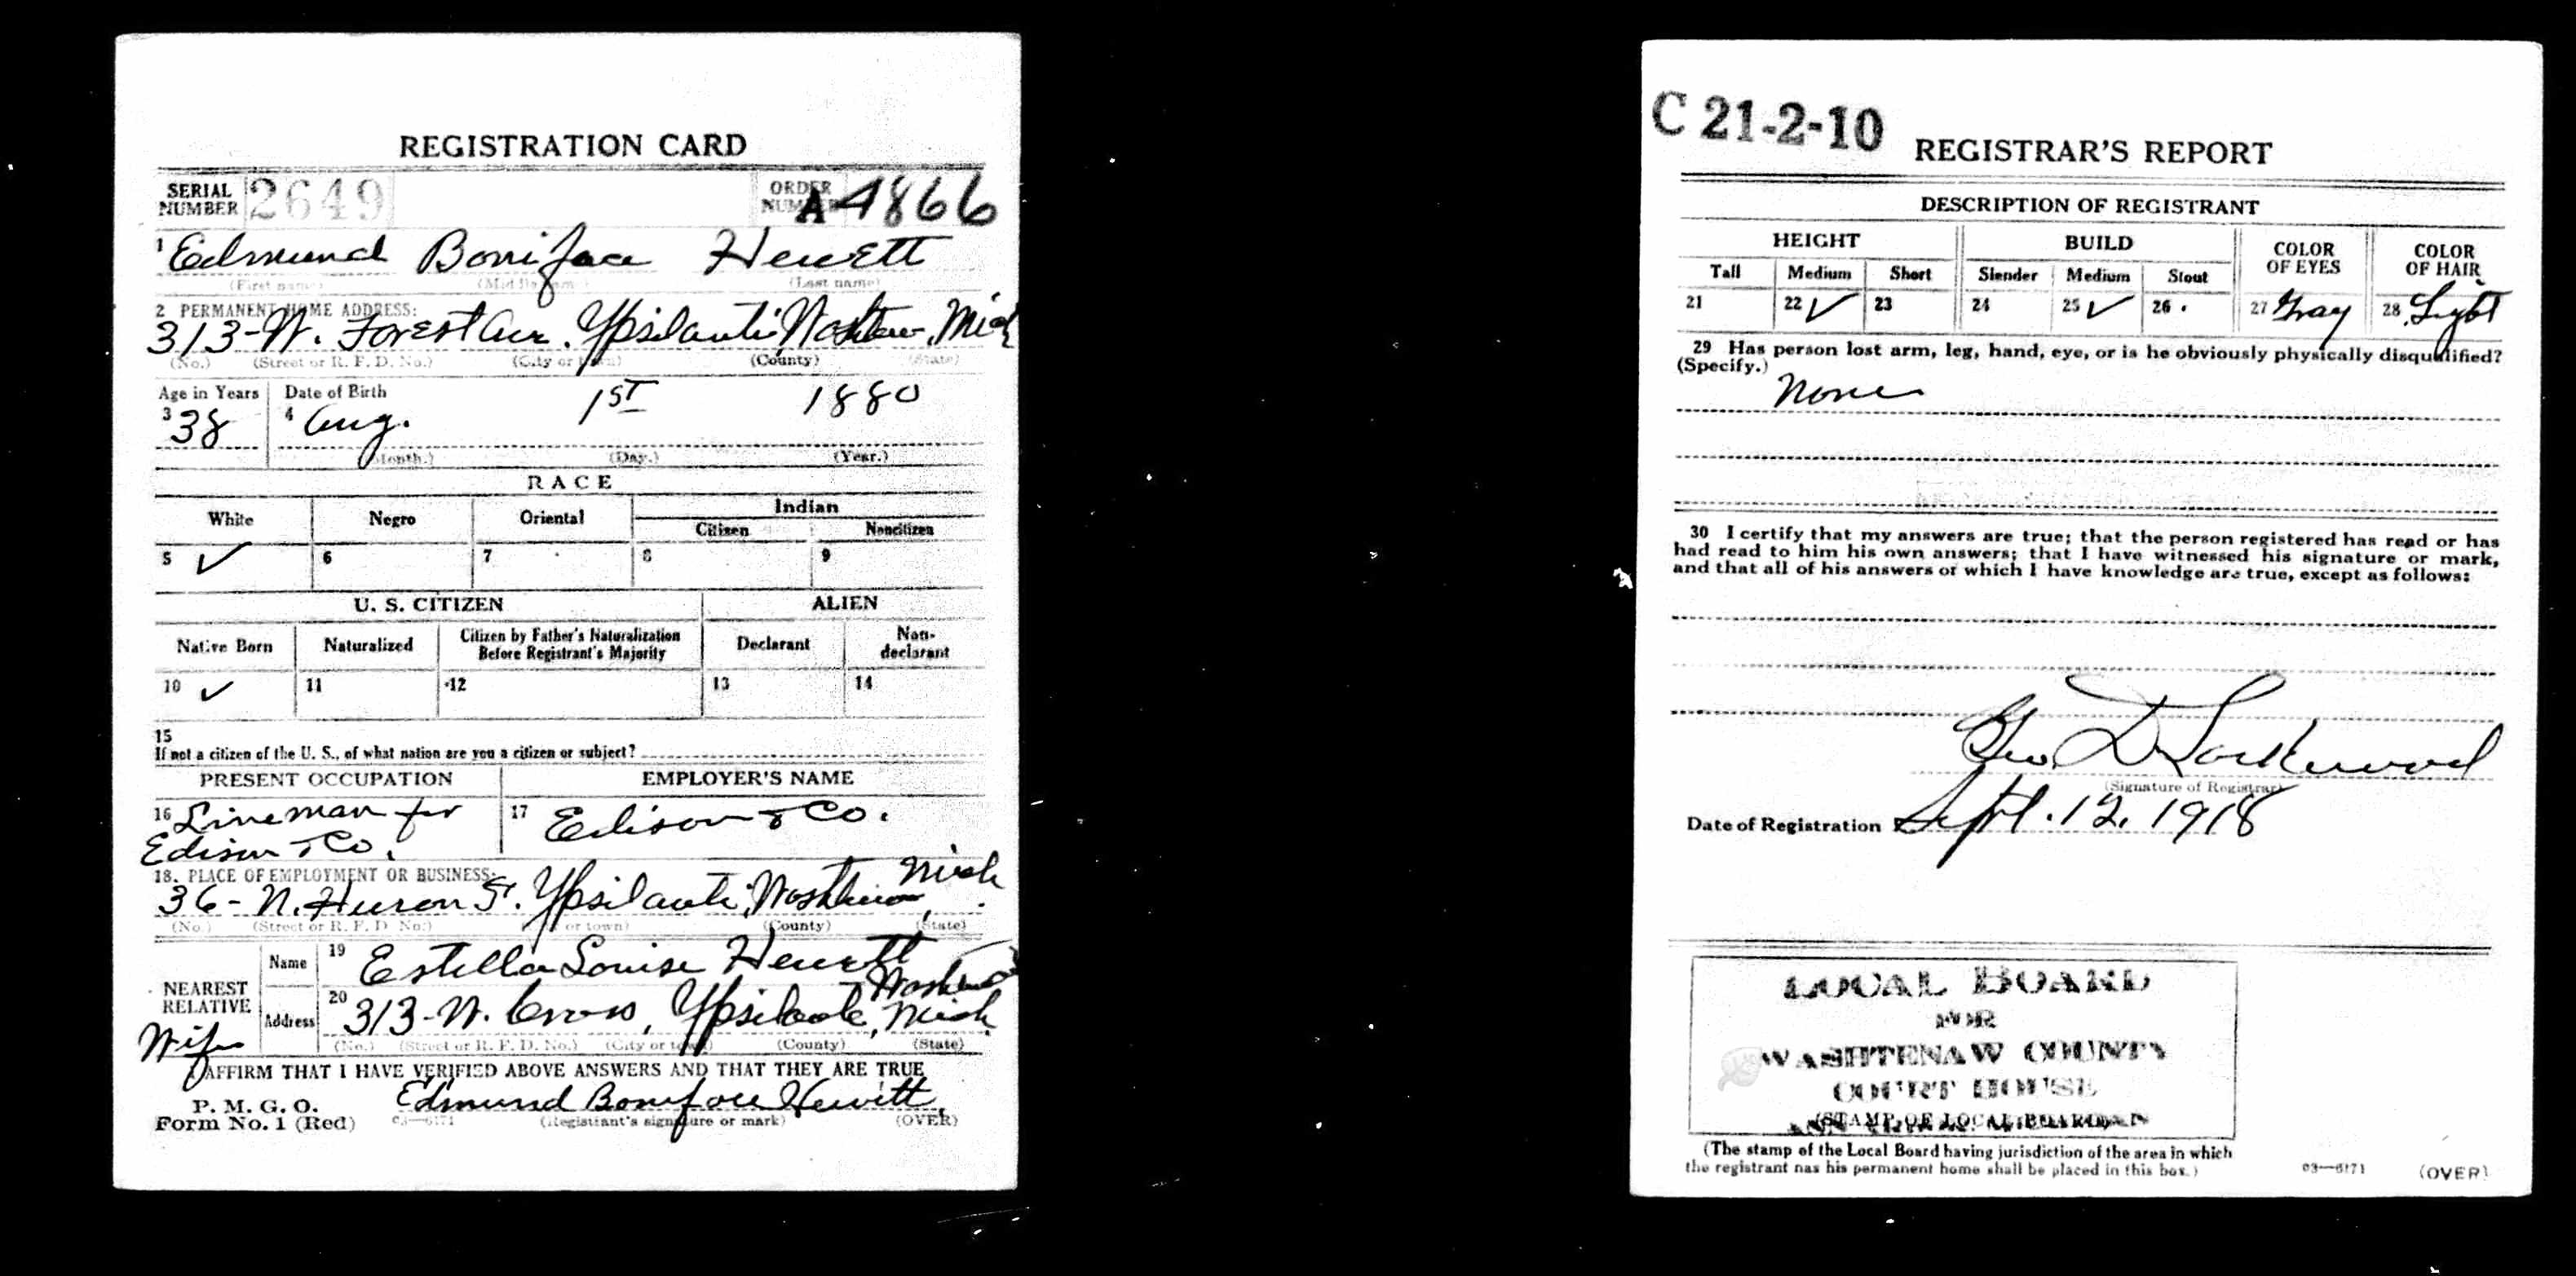 REGISTRATION CARD
SERIAL NUMBER 2649 ORDER NUMBER A 4866
1 Edmund Boniface Hewett
(First name) (Middle name) (Last name)
2 PERMANENT HOME ADDRESS:
313-W. Forest Ave. Ypsilanti, Washtenaw, Mich
(No.) (Street or R. F. D. No.) (City or town) (County) (State)
Age in Years Date of Birth
3 38 4 Aug. 1ST 1880
(Month.) (Day.) (Year.)
RACE
White Negro Oriental Indian
Citizen Noncitizen
5 ✓ 6 7 8 9
U. S. CITIZEN ALIEN
Native Born Naturalized Citizen by Father's Naturalization Before Registrant's Majority Declarant Non-declarant
10 ✓ 11 12 13 14
15
If not a citizen of the U. S., of what nation are you a citizen or subject?
PRESENT OCCUPATION EMPLOYER'S NAME
16 Lineman for 17 Edison & Co.
Edison & Co.
18. PLACE OF EMPLOYMENT OR BUSINESS:
36-N. Huron St. Ypsilanti, Washtenaw, Mich
(No.) (Street or R. F. D. No.) (City or town) (County) (State)
NEAREST RELATIVE
Name 19 Estella Louise Hewett
Washtenaw
Address 20 313-W. Cross, Ypsilanti, Mich
Wife
(No.) (Street or R. F. D. No.) (City or town) (County) (State)
I AFFIRM THAT I HAVE VERIFIED ABOVE ANSWERS AND THAT THEY ARE TRUE
P. M. G. O.
Form No. 1 (Red) 03—6171 Edmund Boniface Hewitt
(Registrant's signature or mark) (OVER)
C 21-2-10
REGISTRAR'S REPORT
DESCRIPTION OF REGISTRANT
HEIGHT BUILD COLOR OF EYES COLOR OF HAIR
Tall Medium Short Slender Medium Stout
21 22 ✓ 23 24 25 ✓ 26 27 Gray 28 Light
29 Has person lost arm, leg, hand, eye, or is he obviously physically disqualified?
(Specify.)
None
30 I certify that my answers are true; that the person registered has read or has
had read to him his own answers; that I have witnessed his signature or mark,
and that all of his answers of which I have knowledge are true, except as follows:
Geo. D Lockwood
(Signature of Registrar)
Date of Registration Sept. 12. 1918
LOCAL BOARD
FOR
WASHTENAW COUNTY
COURT HOUSE
(STAMP OF LOCAL BOARD)
(The stamp of the Local Board having jurisdiction of the area in which
the registrant has his permanent home shall be placed in this box.)
03—6171 (OVER)